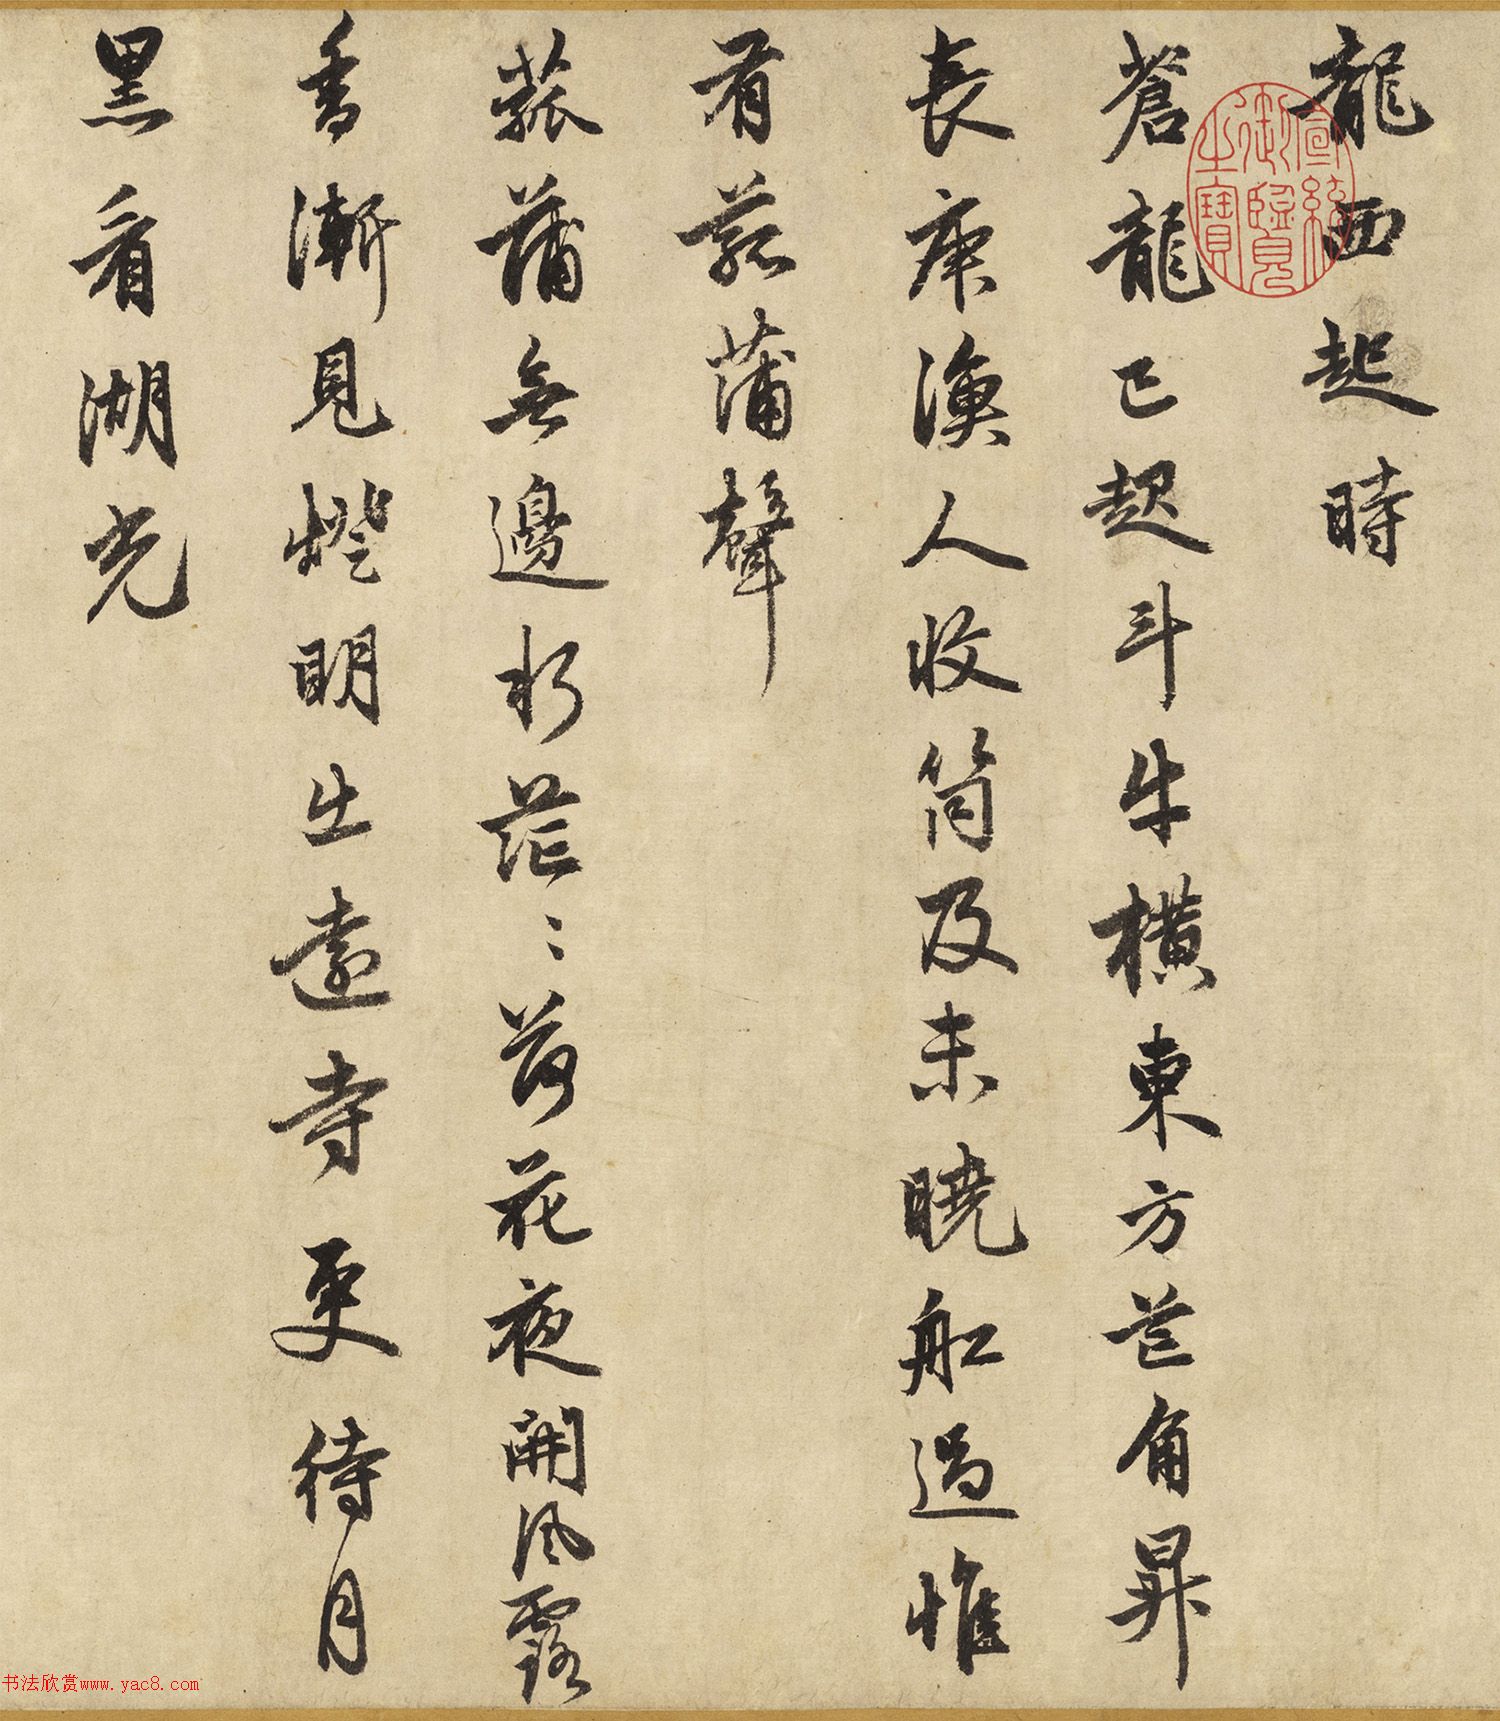 龍西起時
蒼龍已起斗牛橫東方芒角昇
長庚漁人收筒及未曉船過惟
有菰蒲聲
菰蒲無邊水茫〻荷花夜開風露
香漸見燈明出遠寺更待月
黑看湖光
宣統
御覽
之寶
书法欣赏www.yac8.com